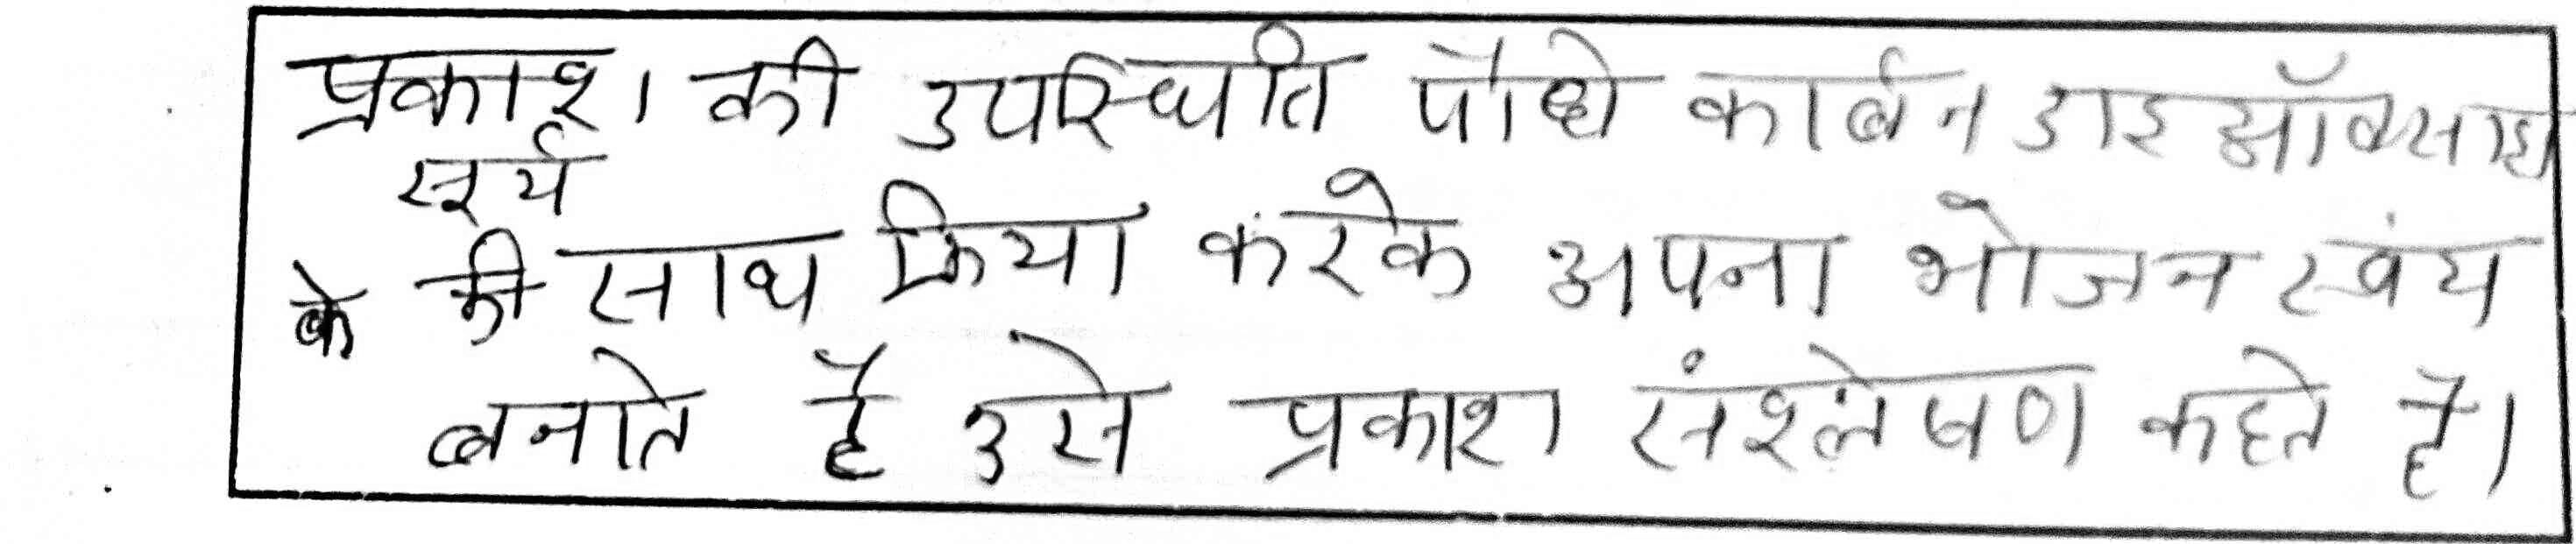 प्रकाश की उपस्थिति पौधे कार्बन डाइऑक्साइ
सूर्य
के की साथ क्रिया करके अपना भोजन स्वंय
बनाते है उसे प्रकाश संश्लेषण कहते है।